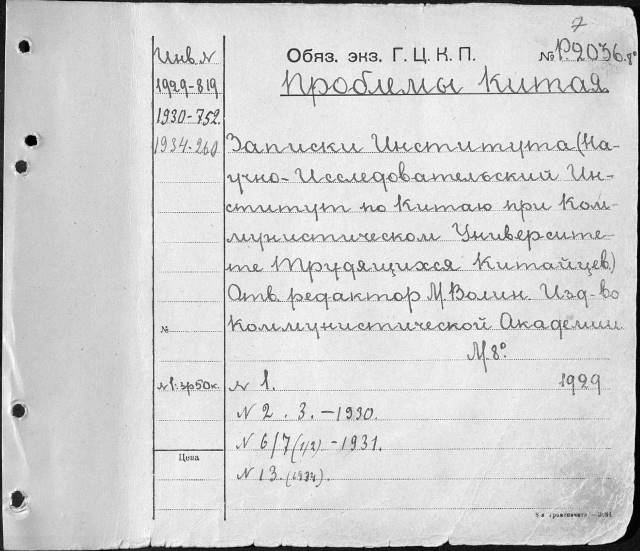 7
Инв. №
Обяз. экз. Г. Ц. К. П.
№ Р.2036.8°
1929-819
Проблемы Китая
1930-752.
1934-260
Записки Института (На-
учно-Исследовательский Ин-
ститут по Китаю при Ком-
мунистическом Университе-
те Трудящихся Китайцев)
Отв. редактор М. Волин. Изд-во
Коммунистической Академии
№
М. 8°
№1: 3р50к.
N 1. 1929
N 2. 3. -1930.
N 6/7 (1/2) -1931.
Цена
N 13. (1934).